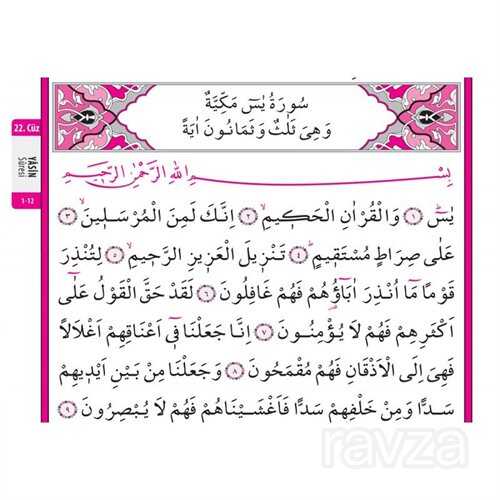 سُورَةُ يٰسٓ مَكِّيَّةٌ
وَهِىَ ثَلٰثٌ وَثَمَانُونَ اٰيَةً
22. Cüz
YÂSÎN
Sûresi
1-12
بِسْمِ اللّٰهِ الرَّحْمٰنِ الرَّحٖيمِ
يٰسٓ ﴿١﴾ وَالْقُرْاٰنِ الْحَكٖيمِ ﴿٢﴾ اِنَّكَ لَمِنَ الْمُرْسَلٖينَ ﴿٣﴾
عَلٰى صِرَاطٍ مُسْتَقٖيمٍ ﴿٤﴾ تَنْزٖيلَ الْعَزٖيزِ الرَّحٖيمِ ﴿٥﴾ لِتُنْذِرَ
قَوْمًا مَٓا اُنْذِرَ اٰبَٓاؤُ۬هُمْ فَهُمْ غَافِلُونَ ﴿٦﴾ لَقَدْ حَقَّ الْقَوْلُ عَلٰٓى
اَكْثَرِهِمْ فَهُمْ لَا يُؤْمِنُونَ ﴿٧﴾ اِنَّا جَعَلْنَا فٖٓى اَعْنَاقِهِمْ اَغْلَالًا
فَهِىَ اِلَى الْاَذْقَانِ فَهُمْ مُقْمَحُونَ ﴿٨﴾ وَجَعَلْنَا مِنْ بَيْنِ اَيْدٖيهِمْ
سَدًّا وَمِنْ خَلْفِهِمْ سَدًّا فَاَغْشَيْنَاهُمْ فَهُمْ لَا يُبْصِرُونَ ﴿٩﴾
ravza